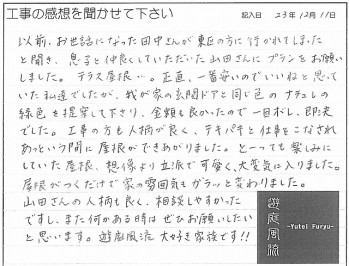 工事の感想を聞かせて下さい
記入日 23年12月11日
以前、お世話になった田中さんが東区の方に行かれてしまった
と聞き、息子と仲良くしていただいた山田さんにプランをお願い
しました。テラス屋根…。正直、一番安いのでいいねと思って
いた私達でしたが、我が家の玄関ドアと同じ色のナチュレの
緑色を提案して下さり、金額も良かったので一目ボレ、即決
でした。工事の方も人柄が良く、テキパキと仕事をこなされ
あっという間に屋根ができあがりました。とーっても楽しみに
していた屋根、想像より立派で可愛く、大変気に入りました。
屋根がつくだけで家の雰囲気もガラッと変わりました。
山田さんの人柄も良く、相談しやすかった
ですし、また何かある時はぜひお願いしたい
と思います。遊庭風流 大好き家族です!!
遊庭風流
-Yutei Furyu-